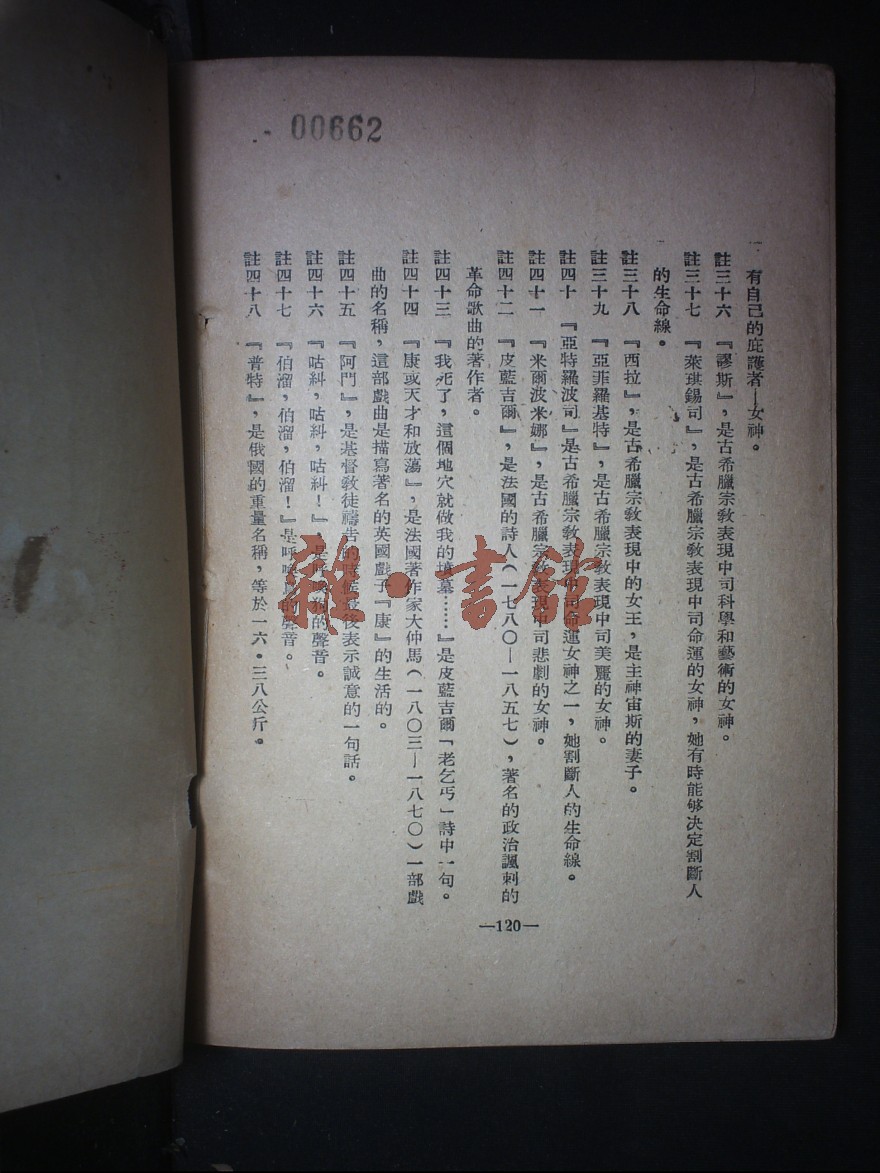 00662
有自己的庇護者—女神。
註三十六　『謬斯』，是古希臘宗教表現中司科學和藝術的女神。
註三十七　『萊琪錫司』，是古希臘宗教表現中司命運的女神，她有時能够决定割斷人
的生命線。
註三十八　『西拉』，是古希臘宗教表現中的女王，是主神宙斯的妻子。
註三十九　『亞菲羅基特』，是古希臘宗教表現中司美麗的女神。
註四十　『亞特羅波司』是古希臘宗教表現中司命運女神之一，她割斷人的生命線。
註四十一　『米爾波米娜』，是古希臘宗教表現中司悲劇的女神。
註四十二　『皮藍吉爾』，是法國的詩人（一七八〇—一八五七），著名的政治諷刺的
革命歌曲的著作者。
註四十三　『我死了，這個地穴就做我的墳墓……』是皮藍吉爾「老乞丐」詩中一句。
註四十四　『康或天才和放蕩』，是法國著作家大仲馬（一八〇三—一八七〇）一部戲
曲的名稱，這部戲曲是描寫著名的英國戲子『康』的生活的。
註四十五　『阿門』，是基督敎徒禱告的時候最後表示誠意的一句話。
註四十六　『咕糾，咕糾，咕糾！』，是呼喚狗的聲音。
註四十七　『伯溜，伯溜，伯溜！』是呼喚的聲音。
註四十八　『普特』，是俄國的重量名稱，等於一六・三八公斤。
—120—
雜・書館